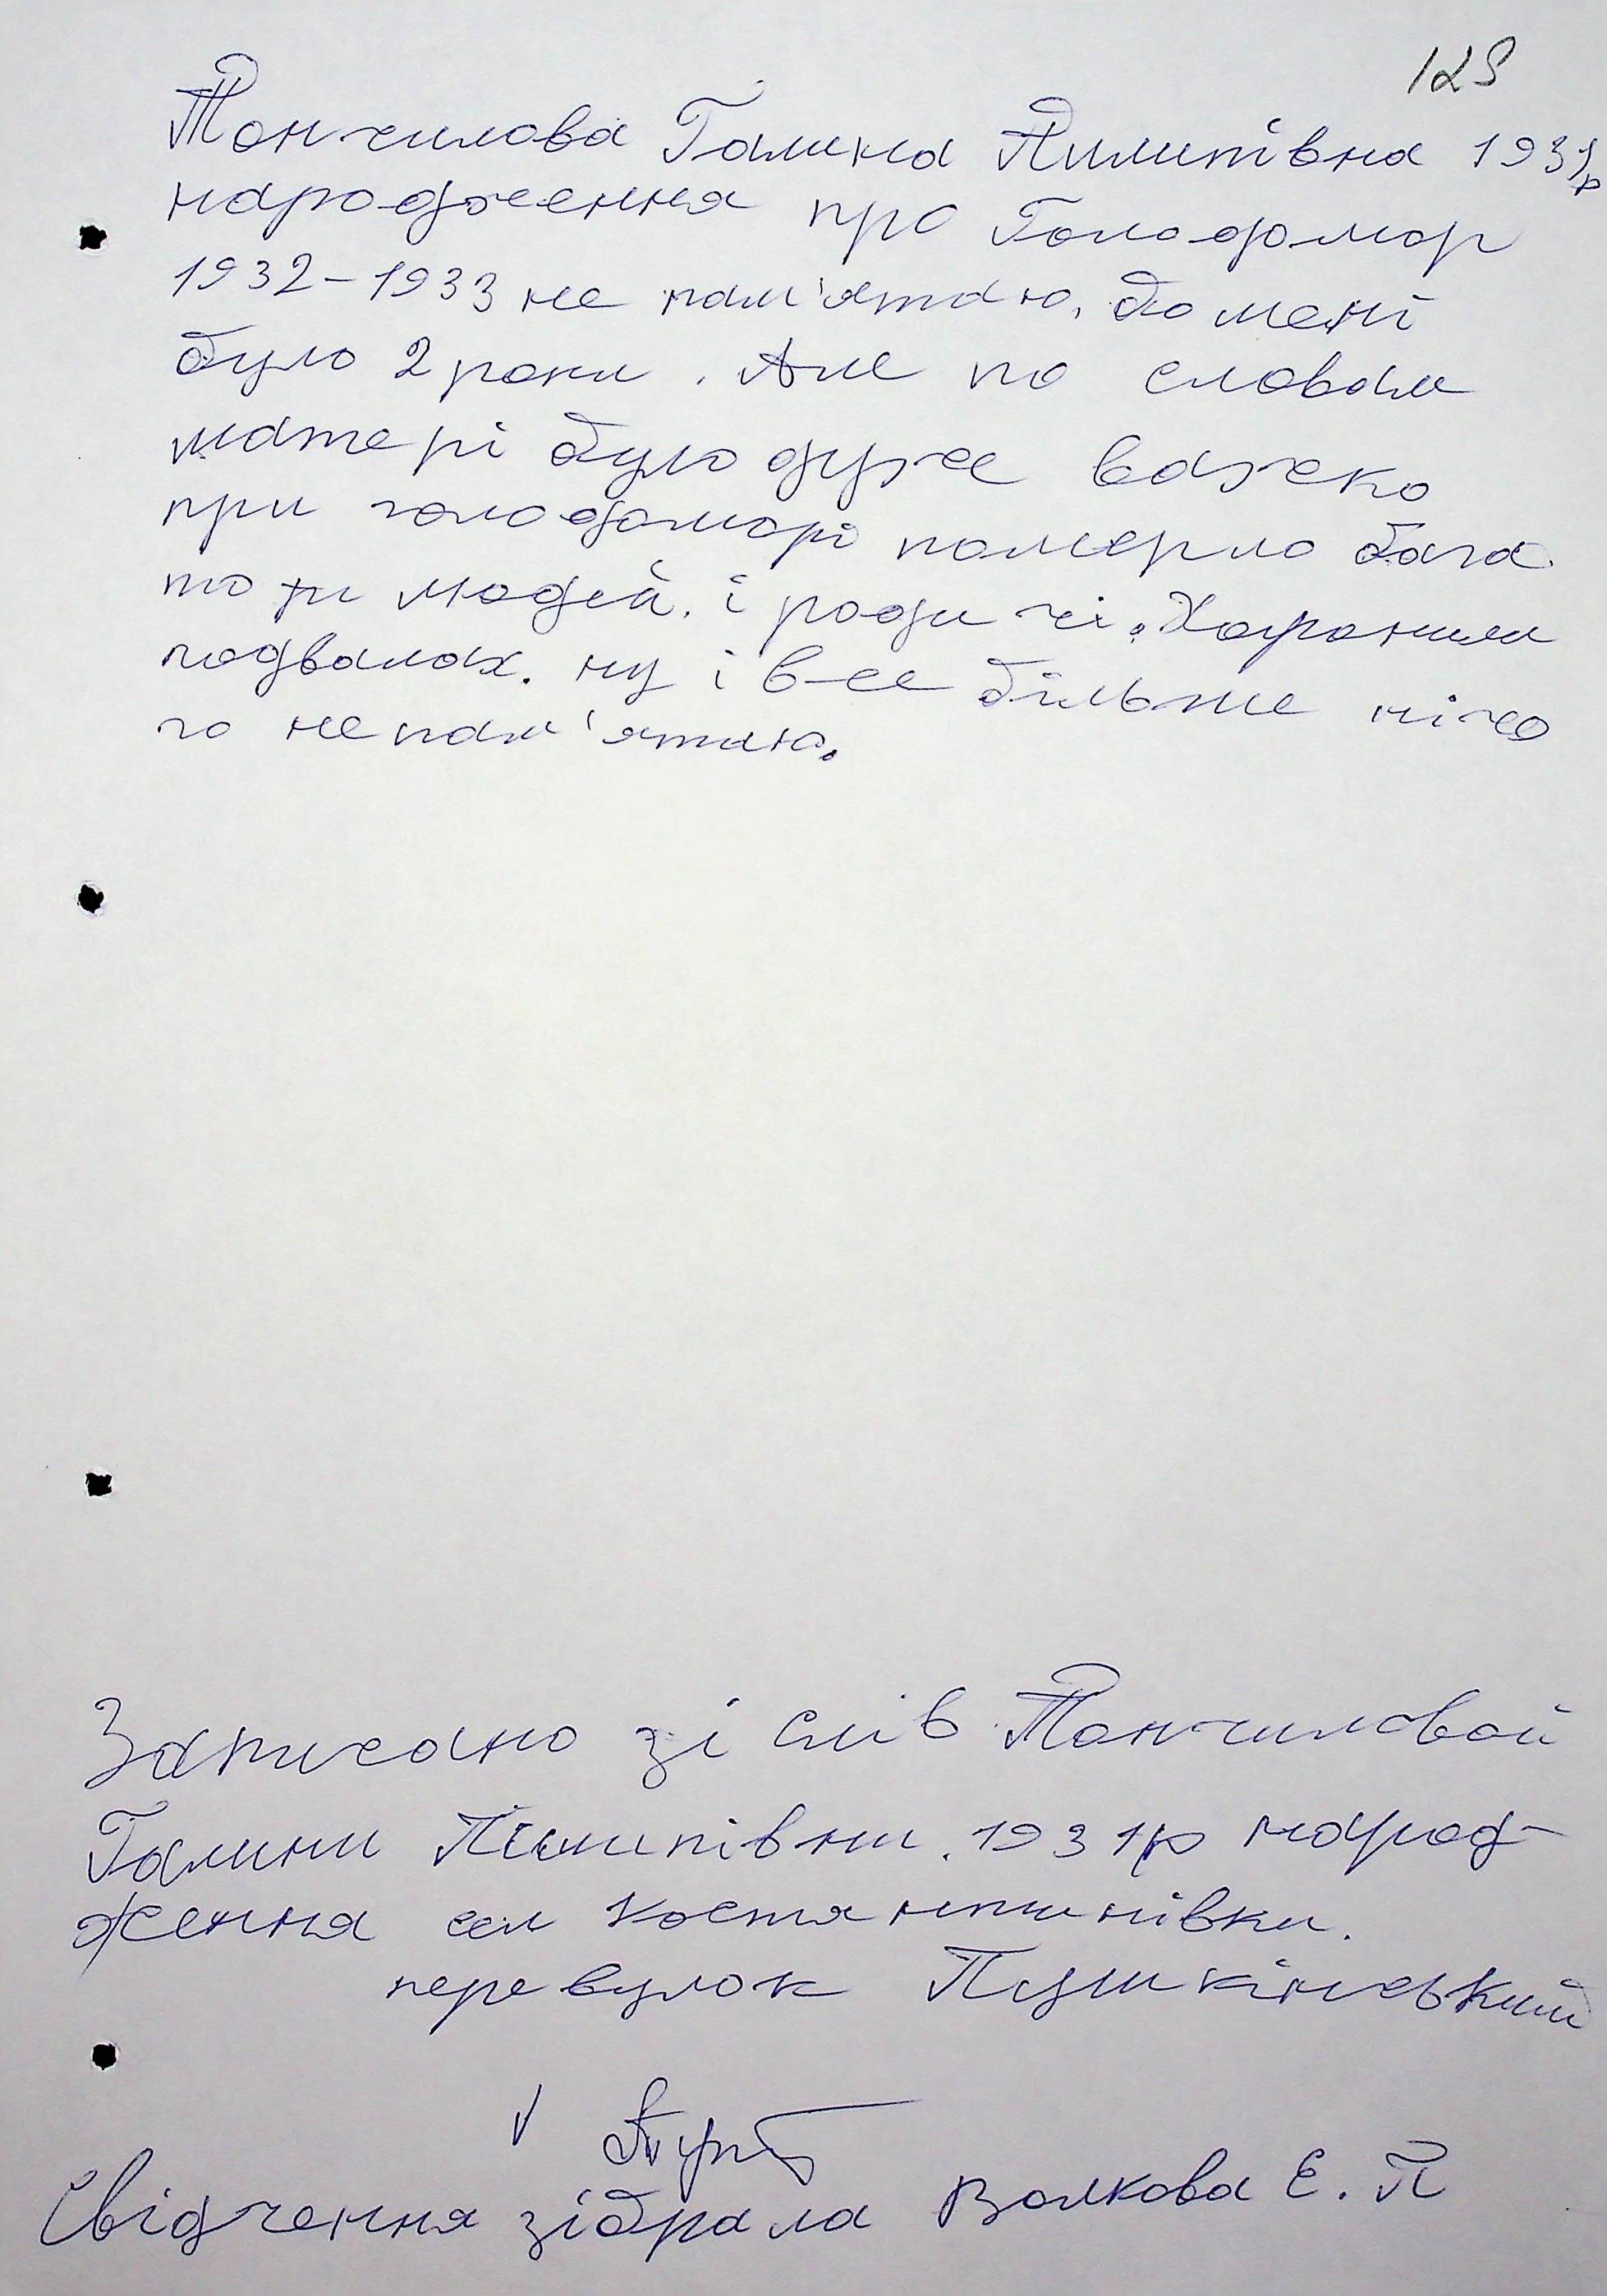 129
Тончилова Галина Пилипівна 1931р
народження про Голодомор
1932-1933 не пам'ятаю, бо мені
було 2 роки. Але по словам
матері було дуже важко
при голодоморі померло бага
то людей. і родичі. Хоронили
подвалах. ну і все більше нічо
го не пам'ятаю.
Записано зі слів Тончиловой
Галини Пилипівни. 1931р народ-
ження сел Костянтинівки.
перевулок Пушкінський
Свідчення зібрала Волкова Е. П